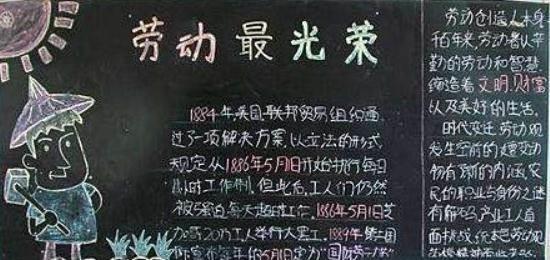 劳动最光荣
1884年美国联邦贸易组织通
过了一项解决方案,以立法的形式
规定从1886年5月1日开始执行每日
八小时工作制,但此后,工人们仍然
被强迫每天超时工作,1886年5月1日芝
加哥20万工人举行大罢工.1889年第二国
际宣布每年的5月1日定为“国际劳动节”
劳动创造人本身
百年来,劳动者以辛
勤的劳动和智慧
缔造着文明,财富
以及美好的生活.
时代变迁,劳动观
发生空前的嬗变.劳动
物有了新的内涵,农
民的职业与身份之谜
有解码,产业工人直
面挑战,